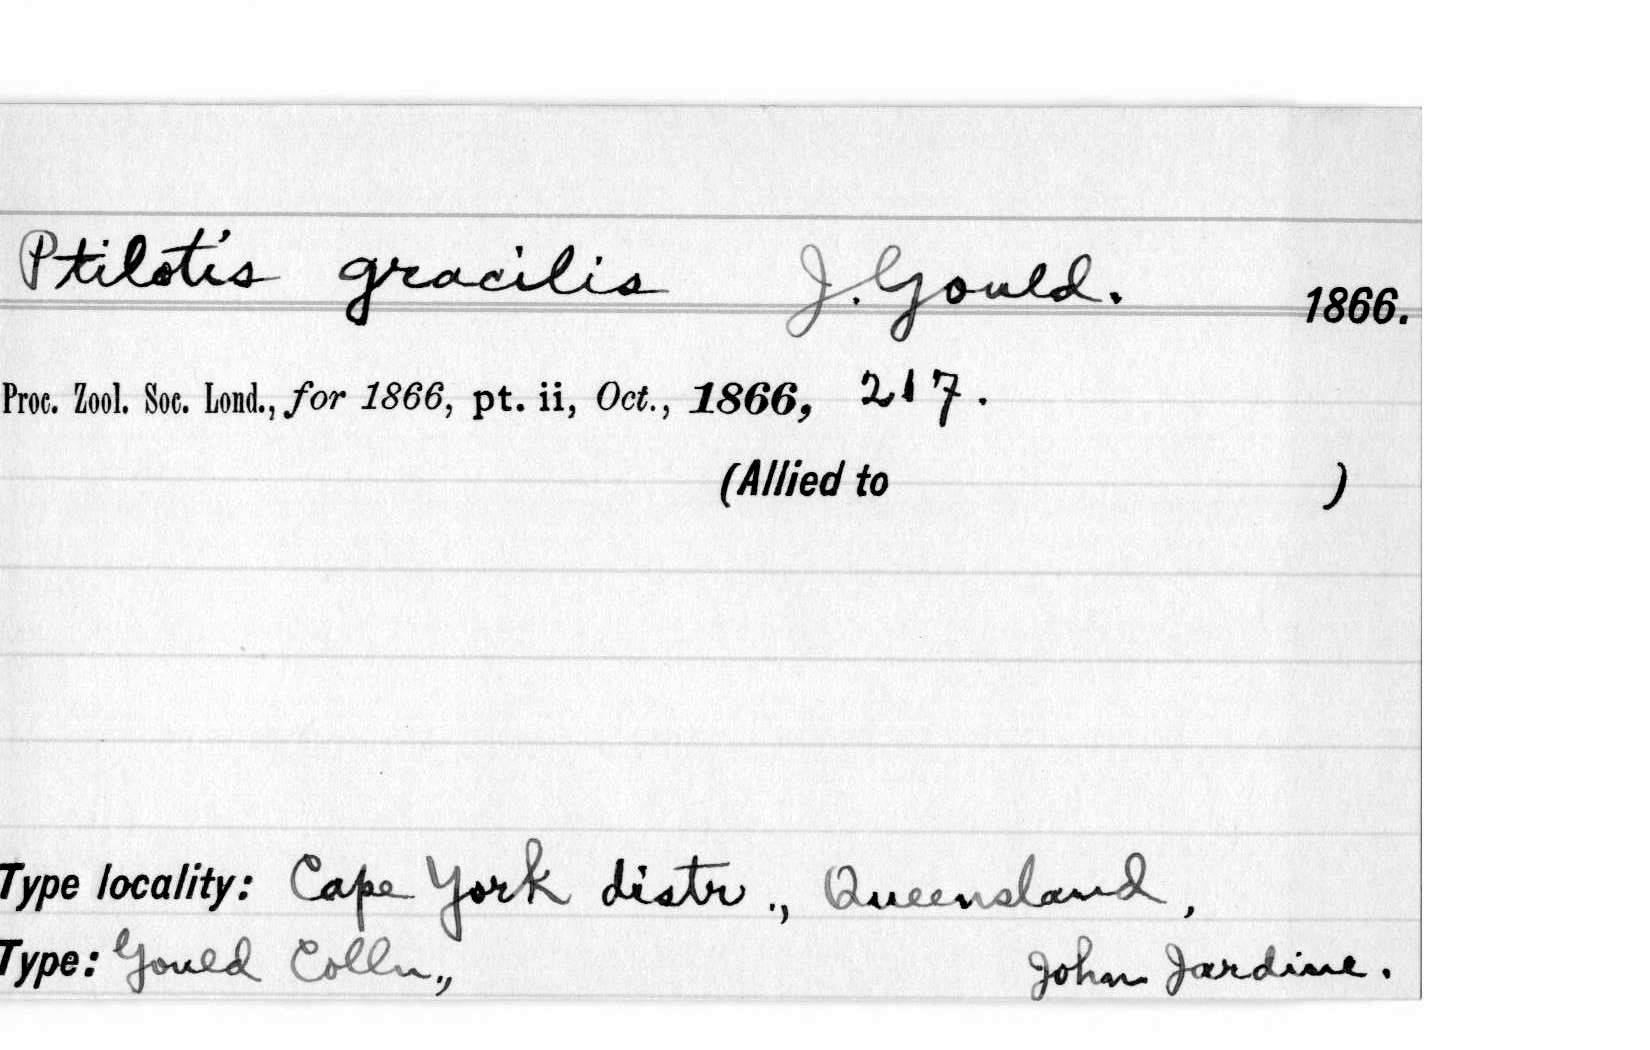 Ptilotis gracilis J. Gould. 1866.
Proc. Zool. Soc. Lond., for 1866, pt. ii, Oct., 1866, 217.
(Allied to )
Type locality: Cape York distr., Queensland,
Type: Gould Colln., John Jardine.